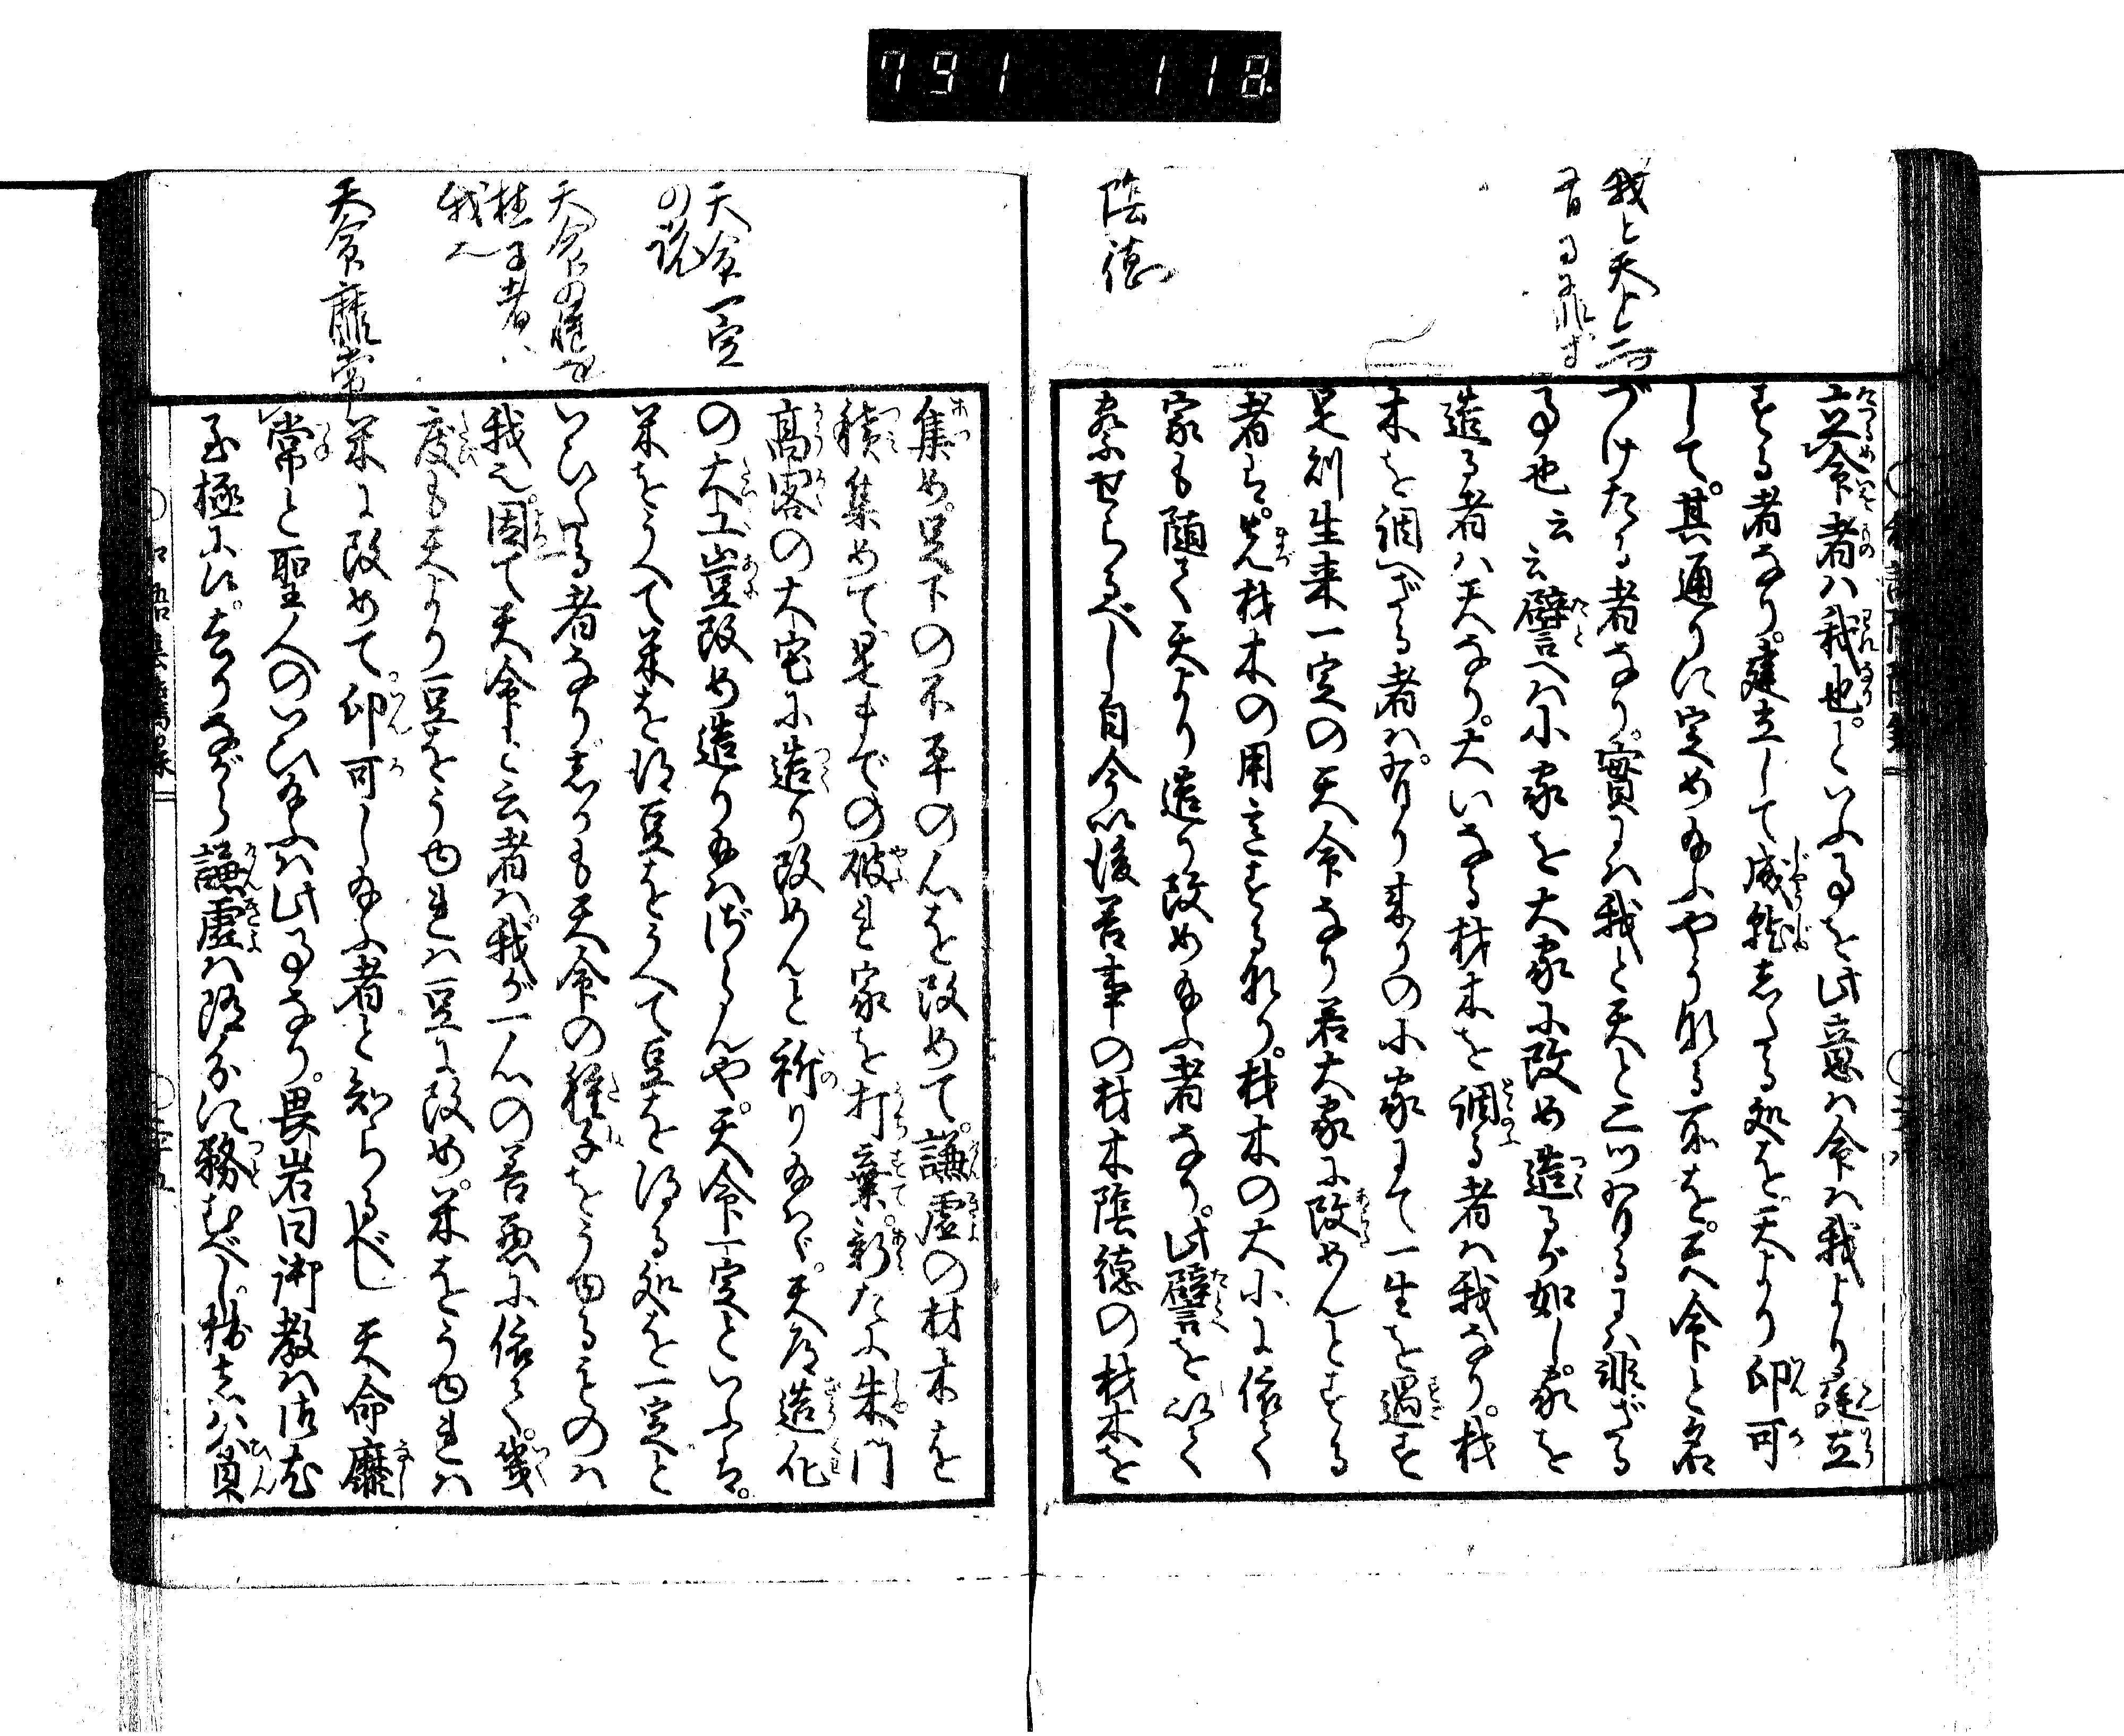 791 118
我と天と二ツ
有る事に非ず
陰徳
立命者ハ我也といふ事を此意ハ命ハ我より建立
する者なり。建立して成就したる処を天より印可
して。其通りに定め給ふやうなる所を。天命と名
づけたる者なり。實にハ我と天と二ツ有るにハ非ざる
事也云云譬へハ小家を大家に改め造るが如し。家を
造る者ハ天なり。大いなる材木を調る者ハ我なり。材
木を調へざる者ハ。有り来りの小家にて一生を過す
是則生来一定の天命なり若大家に改めんとする
者は。先材木の用意する也。材木の大小に依て
家も随て天より造り改め給ふ者なり。此譬を以て
察せらるべし自今以後善事の材木陰徳の材木を
天命一定
の説
天命の種を
植る者ハ
我也
天命靡常
集め。足下の不平の心を改めて。謙虚の材木を
積集めて是までの破れ家を打棄。新たに朱門
高閣の大宅に造り改めんと祈り給ハゞ。天道造化
の大工豈改め造り給ハざらんや。天命一定といふは。
米をうへて米を得豆をうへて豆を得る処を一定と
いひたる者なり然りも天命の種子をうゆるものハ
我也。固て天命と云者ハ。我が一心の善悪に依て。幾
度も天より豆をうゆれハ豆に改め。米をうゆれハ
米に改めて。印可し給ふ者と知らるべし 天命靡
常と聖人のいひ給ふハ此事なり。畏岩曰御教ハ
至極に候。去りながら謙虚ハ随分に務むべし。扨又貧